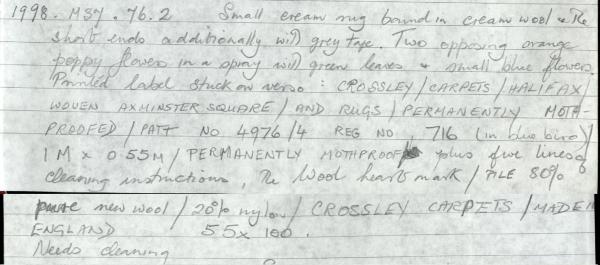 1998. M57. 76. 2 Small cream rug bound in cream wool & The
short ends additionally with grey tape. Two opposing orange
poppy flowers in a spray with green leaves & small blue flowers.
Printed label stuck on verso : CROSSLEY / CARPETS / HALIFAX /
WOVEN AXMINSTER SQUARE / AND RUGS / PERMANENTLY MOTH-
PROOFED / PATT NO 4976/4 REG NO, 716 (in blue biro) /
1 M x 0.55M / PERMANENTLY MOTHPROOF plus five lines of
cleaning instructions, The Wool heart mark / PILE 80%
pure new wool / 20% nylon / CROSSLEY CARPETS / MADE IN
ENGLAND 55 x 100.
Needs cleaning